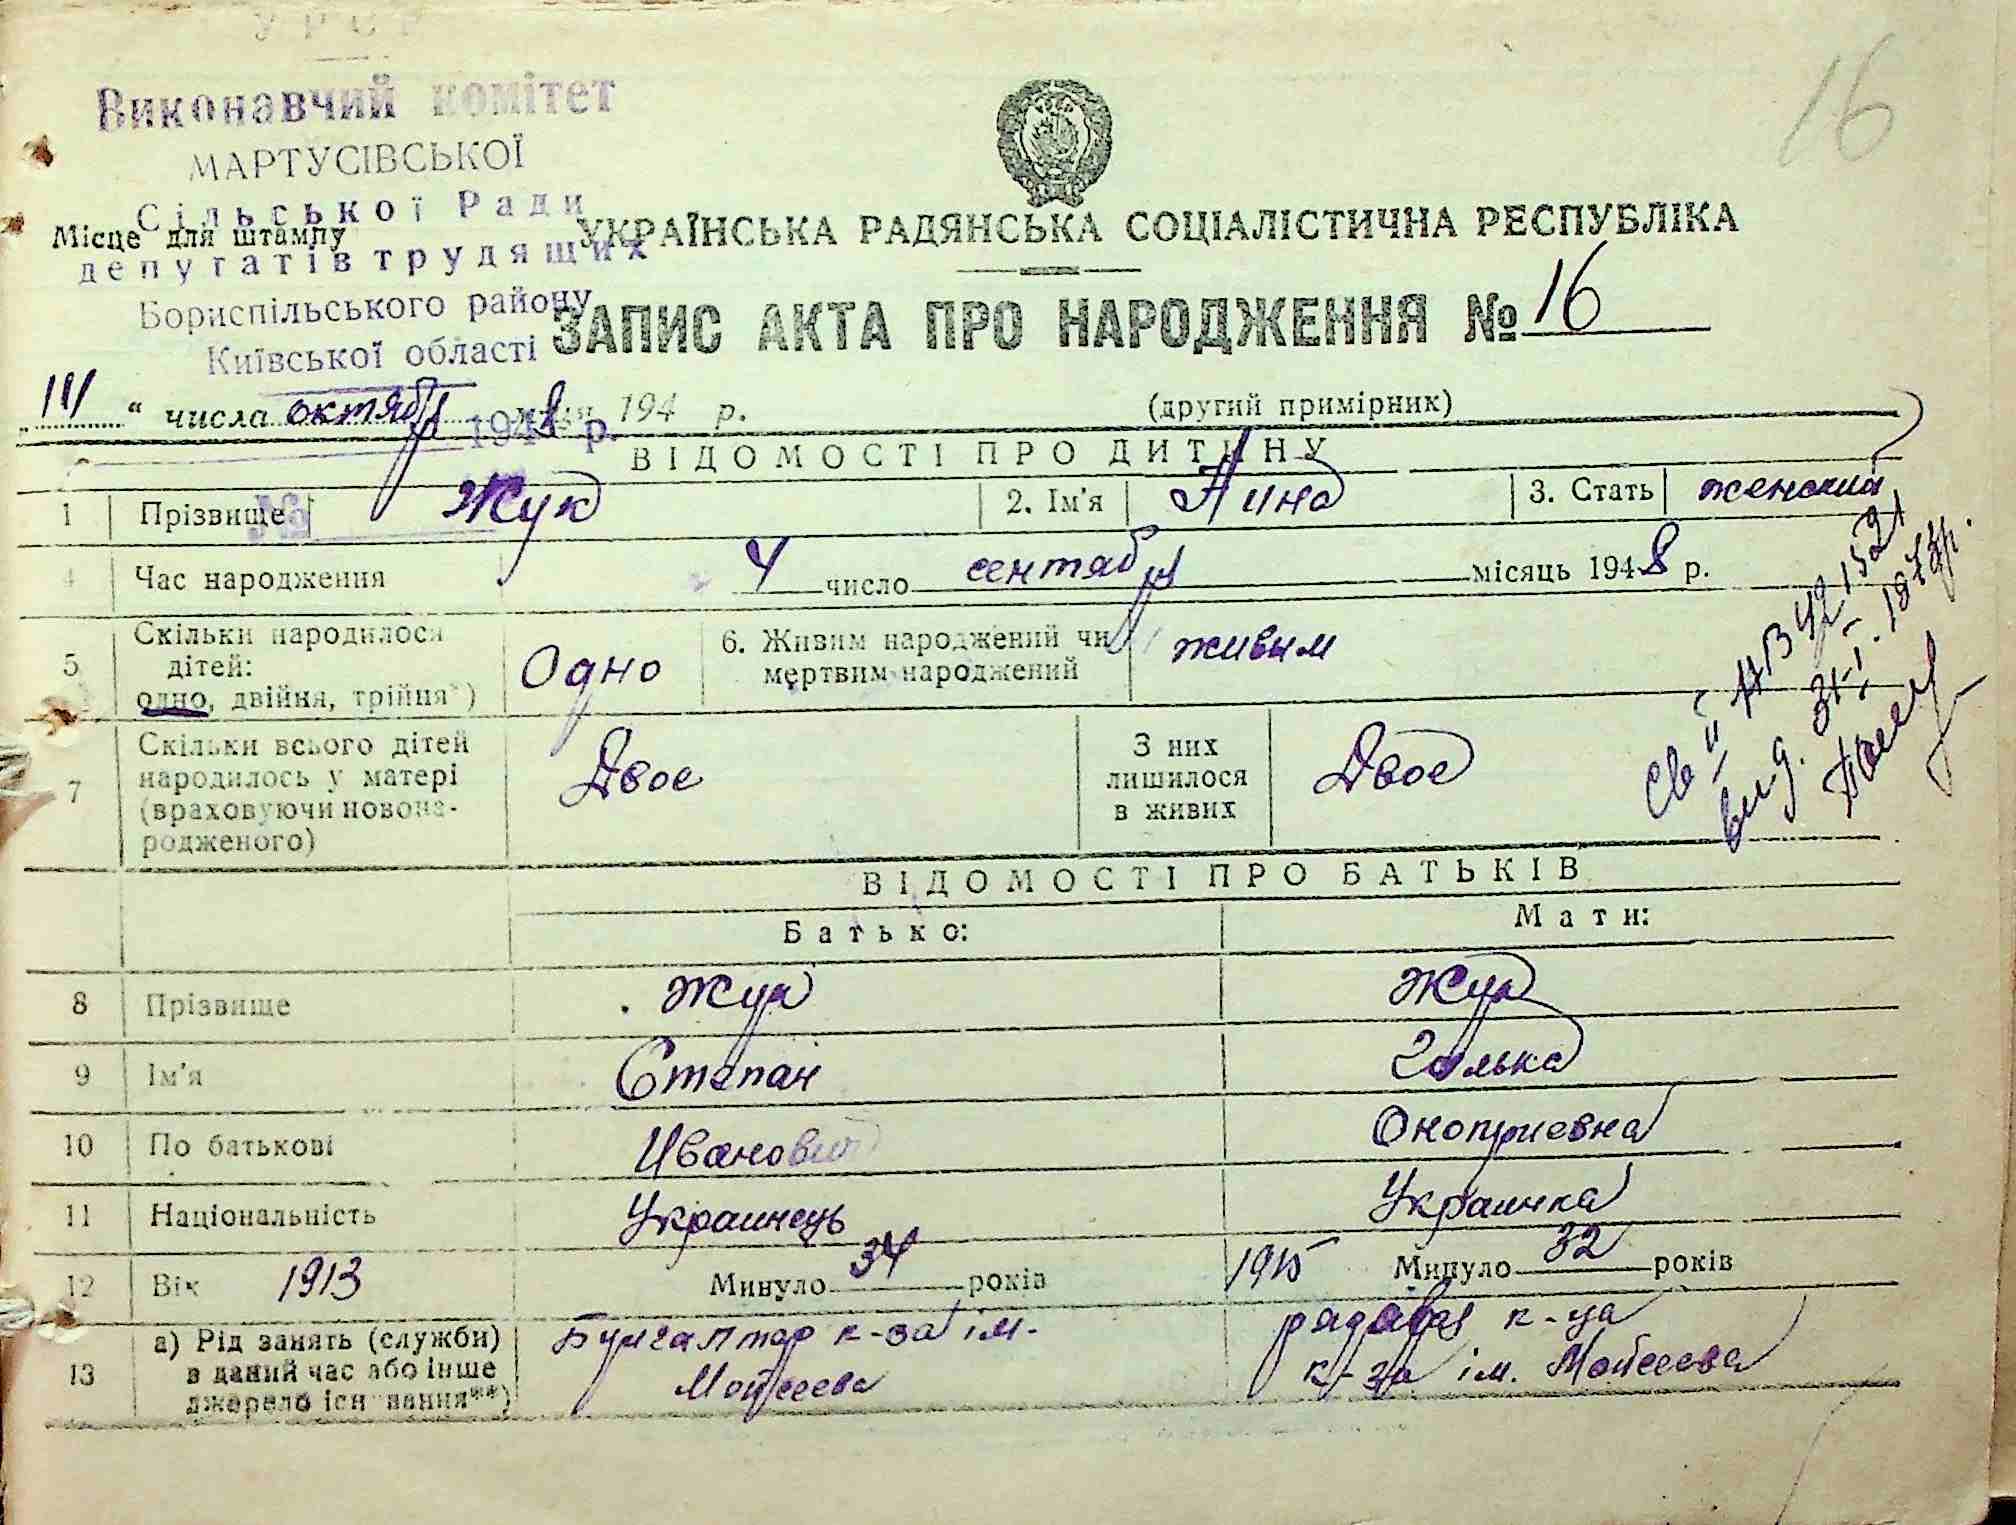 УРСР
16
Виконавчий комітет
МАРТУСІВСЬКОЇ
Сільської Ради
Місце для штампу
депутатів трудящих
Бориспільського району
Київської області
УКРАЇНСЬКА РАДЯНСЬКА СОЦІАЛІСТИЧНА РЕСПУБЛІКА
ЗАПИС АКТА ПРО НАРОДЖЕННЯ № 16
„ 111 “ числа октября 1948 р. 194 р. (другий примірник)
ВІДОМОСТІ ПРО ДИТИНУ
1 Прізвище Жук 2. Ім'я Нина 3. Стать женский
№
4 Час народження 4 число сентября місяць 1948 р.
5 Скільки народилося дітей: одно, двійня, трійня*) Одно 6. Живим народжений чи мертвим народжений живым
7 Скільки всього дітей народилось у матері (враховуючи новонародженого) Двое З них лишилося в живих Двое
Св II 421521
вид. 31.I.1973р.
ВІДОМОСТІ ПРО БАТЬКІВ
Батько: Мати:
8 Прізвище Жук Жук
9 Ім'я Степан Галька
10 По батькові Иванович Оноприевна
11 Національність Украинець Украинка
12 Вік 1913 Минуло 34 років 1915 Минуло 32 років
13 а) Рід занять (служби) в даний час або інше джерело існування**) Бухгалтер к-за ім. Мойсеева рядовая к-ца к-за ім. Мойсеева